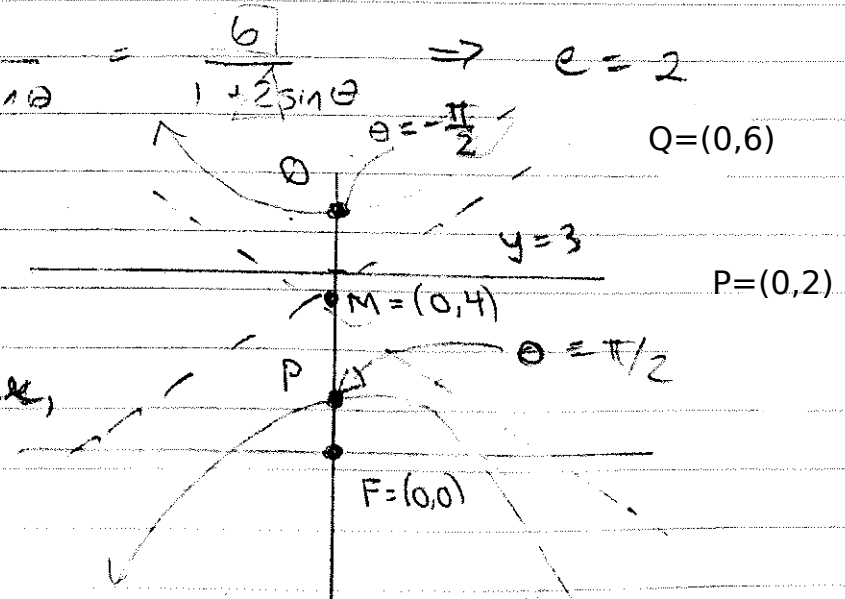 = 6 / (1 + 2 sin θ) ⇒ e = 2
θ = -π/2
Q=(0,6)
Q
y = 3
P=(0,2)
M = (0,4)
θ = π/2
P
F = (0,0)